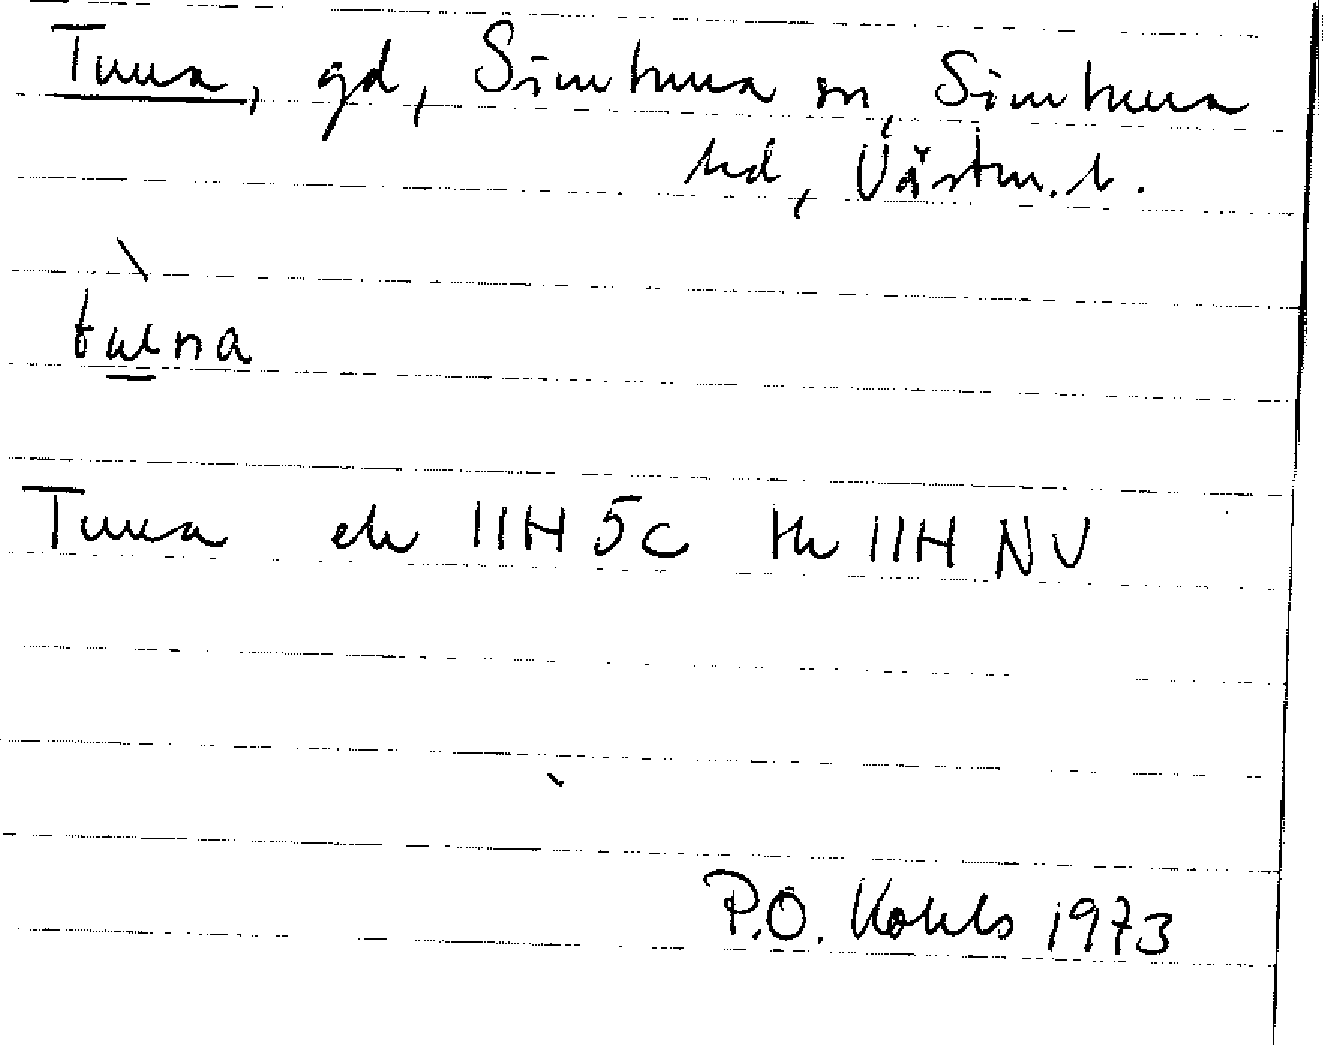 Tuna, gd, Simtuna sn, Simtuna
hd, Västm. l.
tuna
Tuna ek 11H 5c tk 11H NV
P.O. Kohls 1973